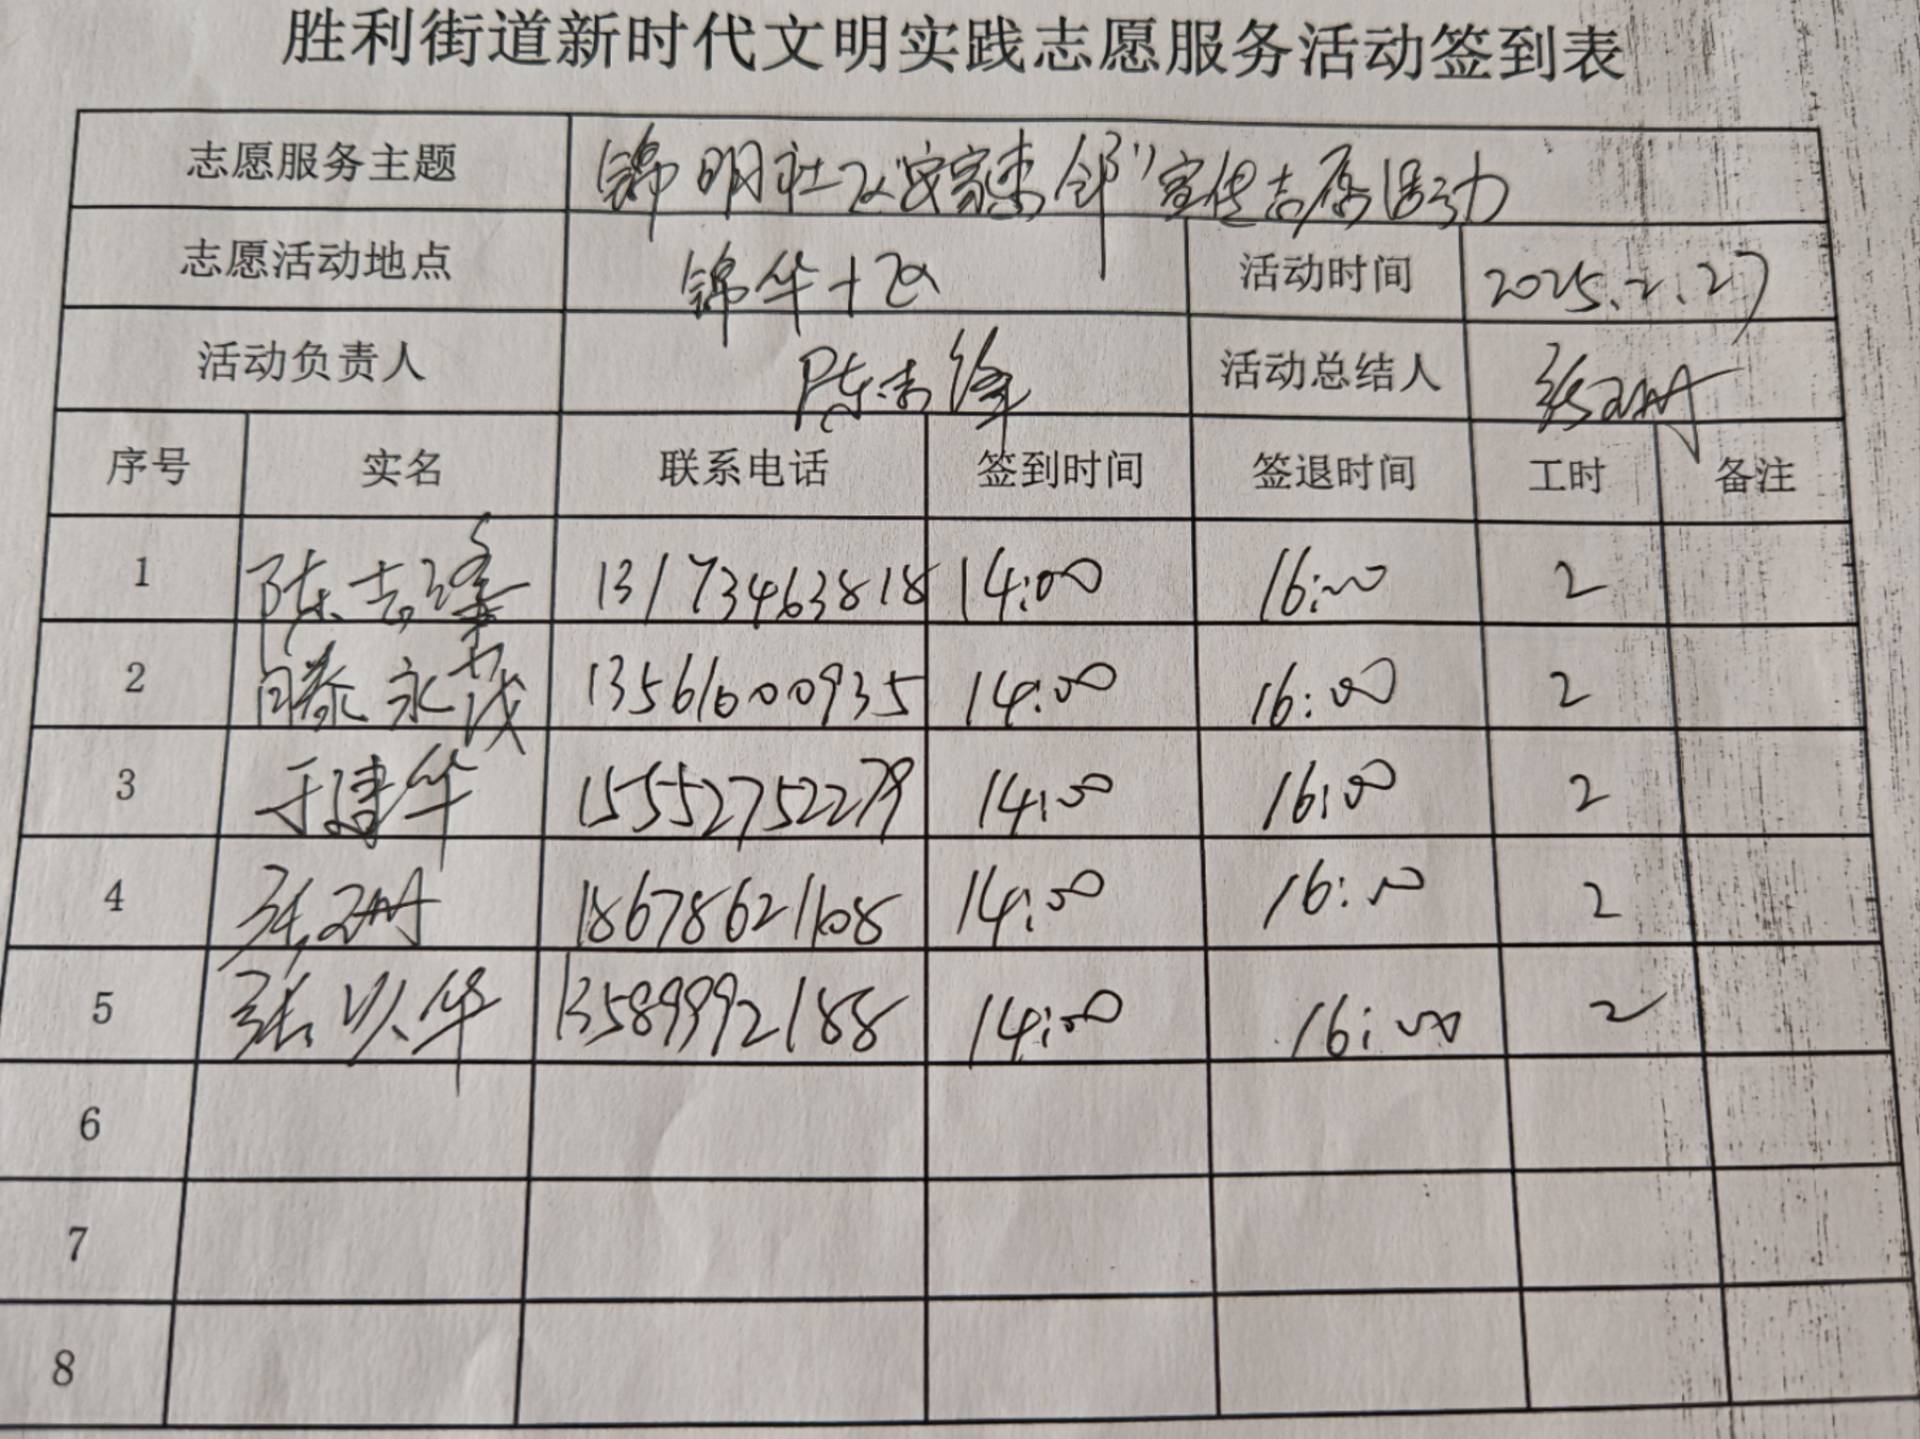 胜利街道新时代文明实践志愿服务活动签到表
志愿服务主题 锦明社区"安家惠邻"宣传志愿活动
志愿活动地点 锦华十区 活动时间 2025.2.27
活动负责人 陈志峰 活动总结人 张珊
序号 实名 联系电话 签到时间 签退时间 工时 备注
1 陈志峰 13173463818 14:00 16:00 2
2 滕永茂 13561600935 14:00 16:00 2
3 于建华 15552752279 14:00 16:00 2
4 张珊 18678621108 14:00 16:00 2
5 张以华 13589992188 14:00 16:00 2
6
7
8